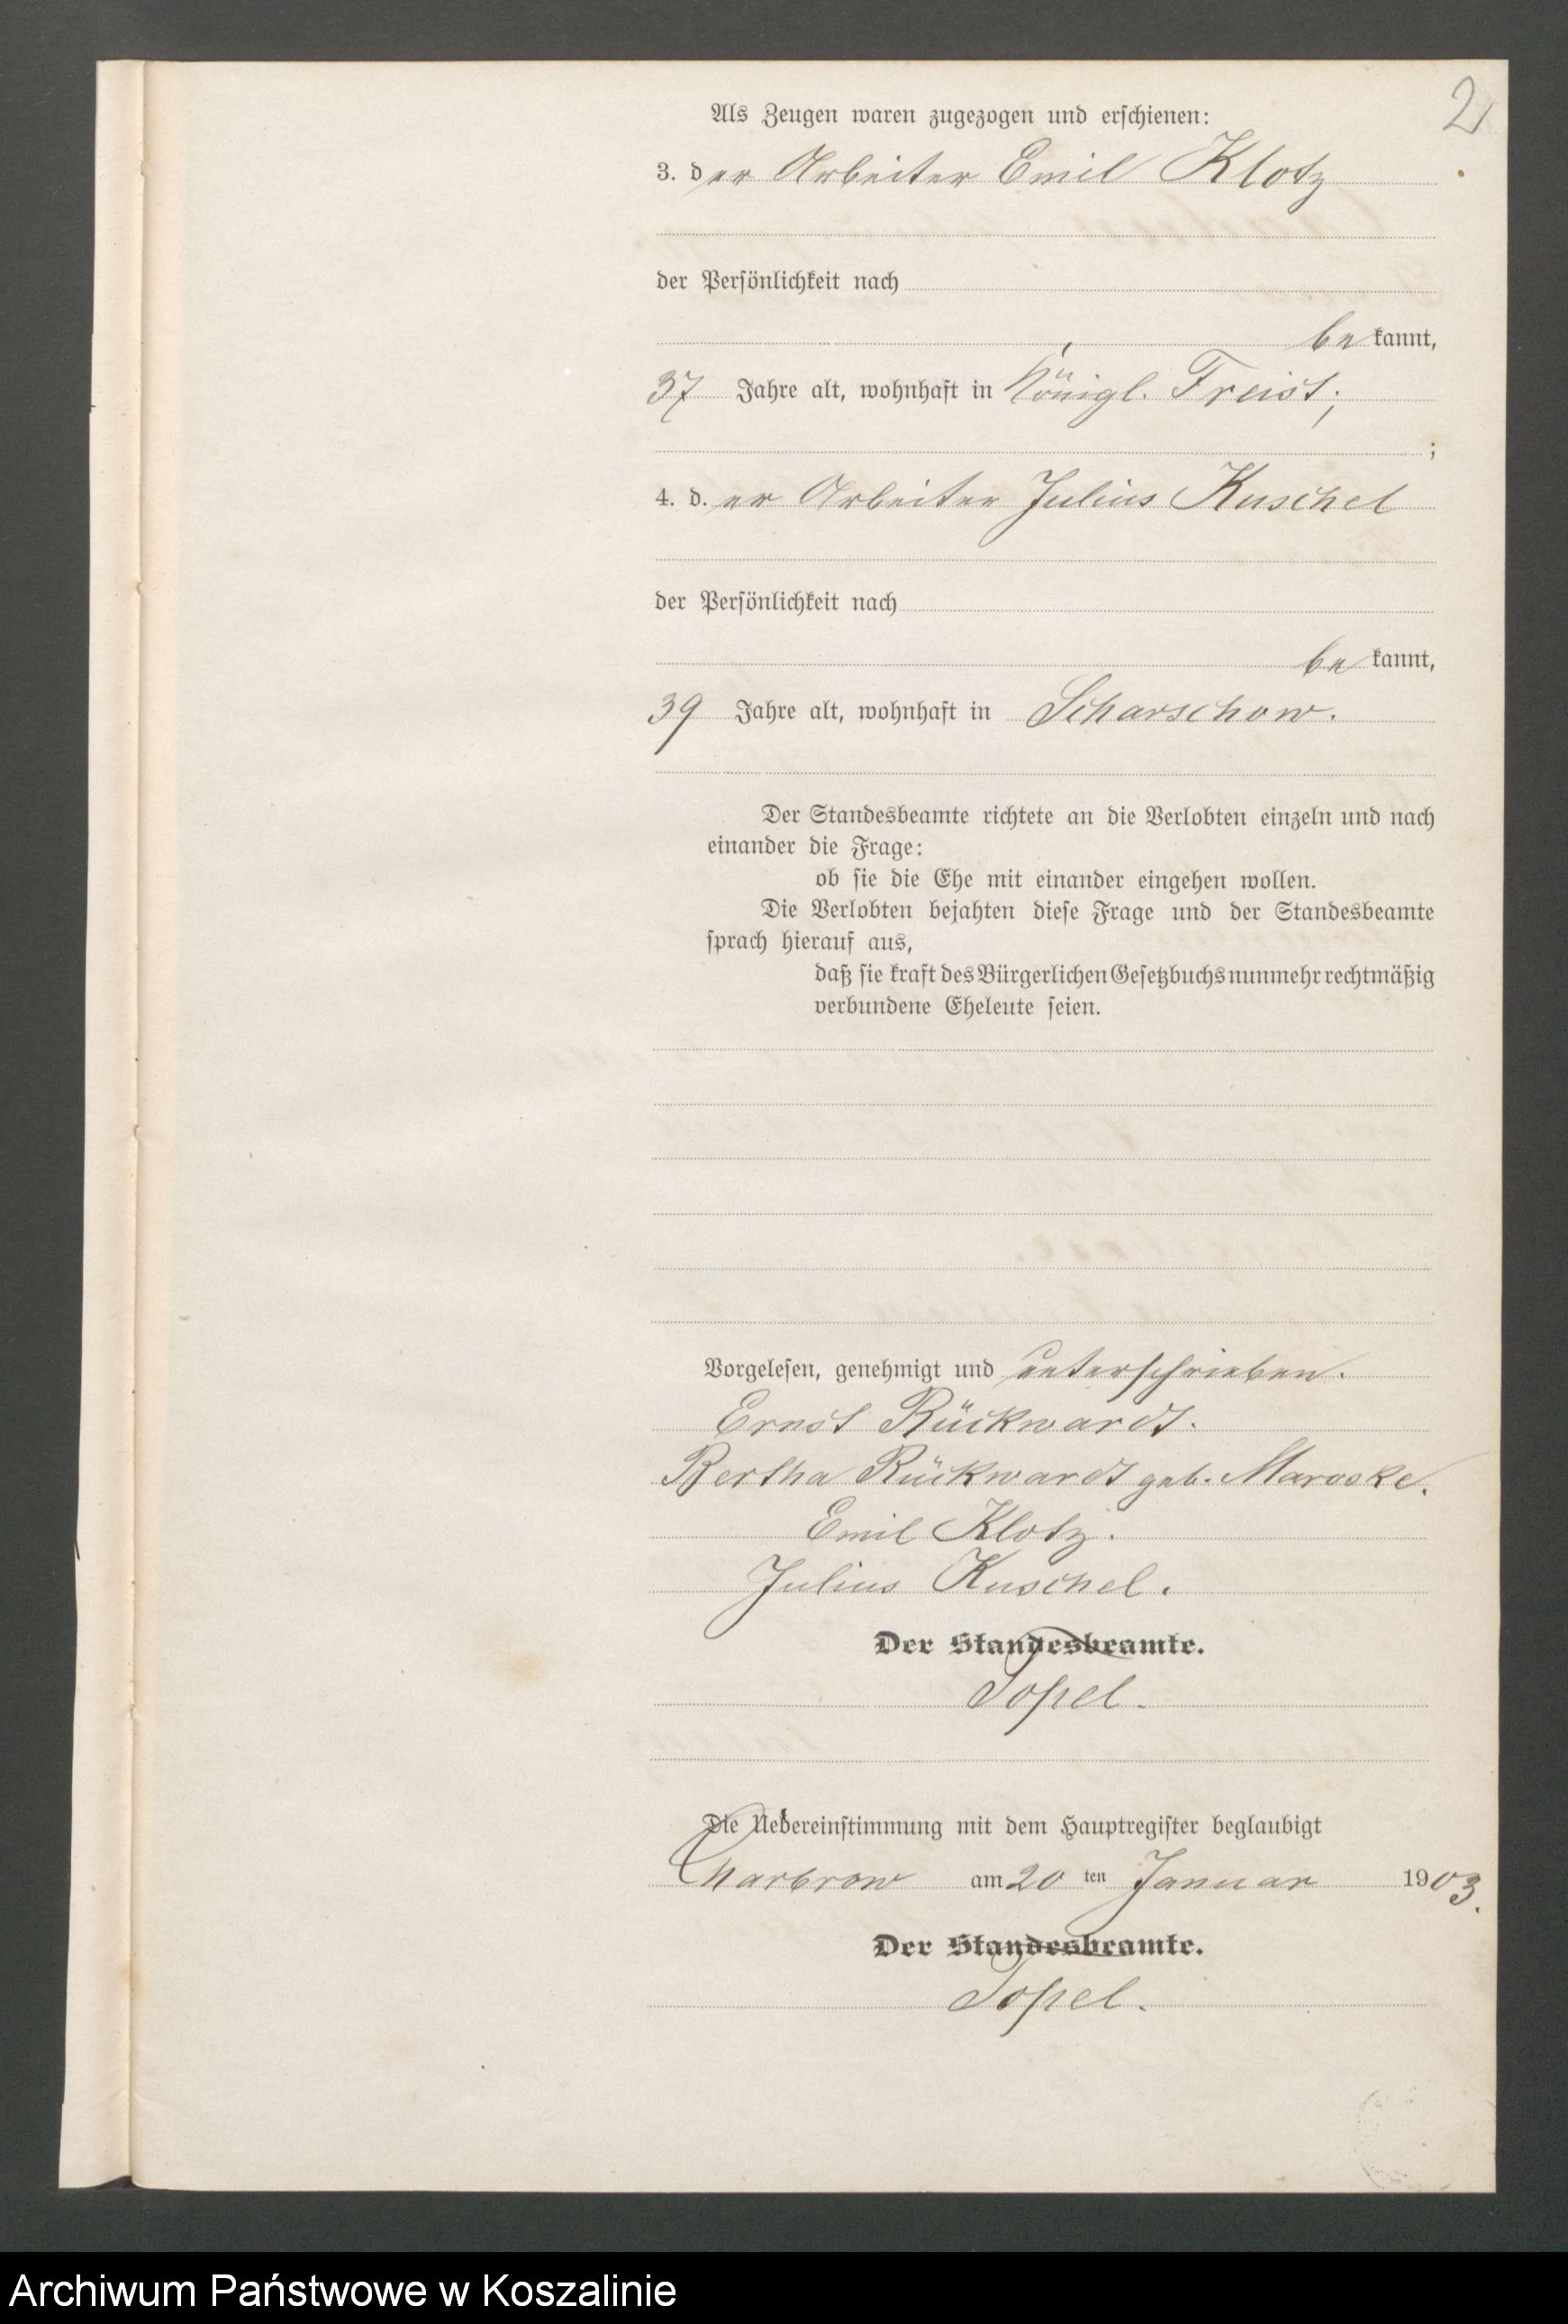 2
Als Zeugen waren zugezogen und erschienen:
3. der Arbeiter Emil Klotz
der Persönlichkeit nach
be kannt,
37 Jahre alt, wohnhaft in Königl. Freist;
;
4. d. er Arbeiter Julius Kuschel
der Persönlichkeit nach
be kannt,
39 Jahre alt, wohnhaft in Scharschow.
Der Standesbeamte richtete an die Verlobten einzeln und nach
einander die Frage:
ob sie die Ehe mit einander eingehen wollen.
Die Verlobten bejahten diese Frage und der Standesbeamte
sprach hierauf aus,
daß sie kraft des Bürgerlichen Gesetzbuchs nunmehr rechtmäßig
verbundene Eheleute seien.
Vorgelesen, genehmigt und unterschrieben.
Ernst Rückwardt.
Bertha Rückwardt geb. Maroske.
Emil Klotz.
Julius Kuschel.
Der Standesbeamte.
Topel.
Die Uebereinstimmung mit dem Hauptregister beglaubigt
Charbrow am 20 ten Januar 1903.
Der Standesbeamte.
Topel.
Archiwum Państwowe w Koszalinie